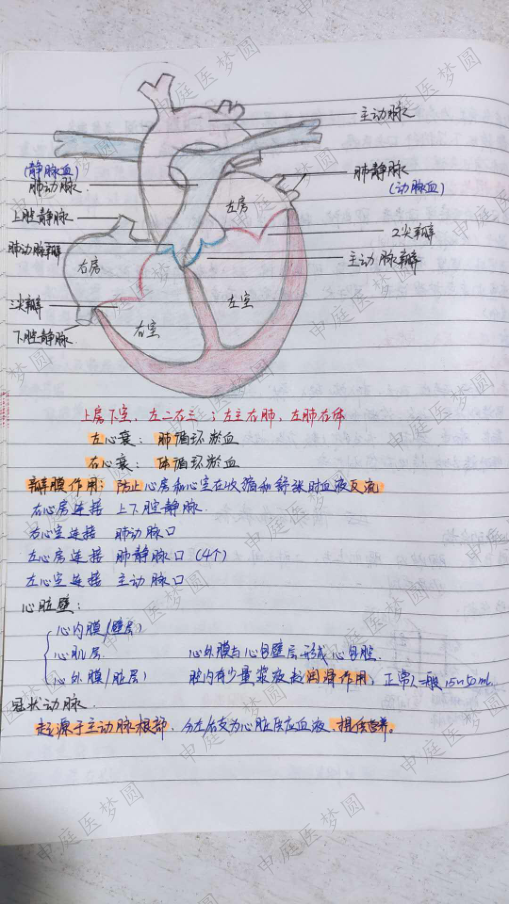 主动脉
(静脉血)
肺动脉
肺静脉
(动脉血)
上腔静脉
左房
肺动脉瓣
2尖瓣
主动脉瓣
右房
三尖瓣
左室
右室
下腔静脉
上房下室、左二右三；左主右肺，左肺右体
左心衰：肺循环淤血
右心衰：体循环淤血
瓣膜作用：防止心房和心室在收缩和舒张时血液反流
右心房连接 上下腔静脉
右心室连接 肺动脉口
左心房连接 肺静脉口 (4个)
左心室连接 主动脉口
心脏壁：
心内膜/壁层)
心肌层 心外膜与心包壁层形成心包腔.
心外膜/脏层) 腔内有少量浆液起润滑作用，正常人一般15~50mL
冠状动脉
起源于主动脉根部，分左右支为心脏供应血液，提供营养。
中庭医梦圆